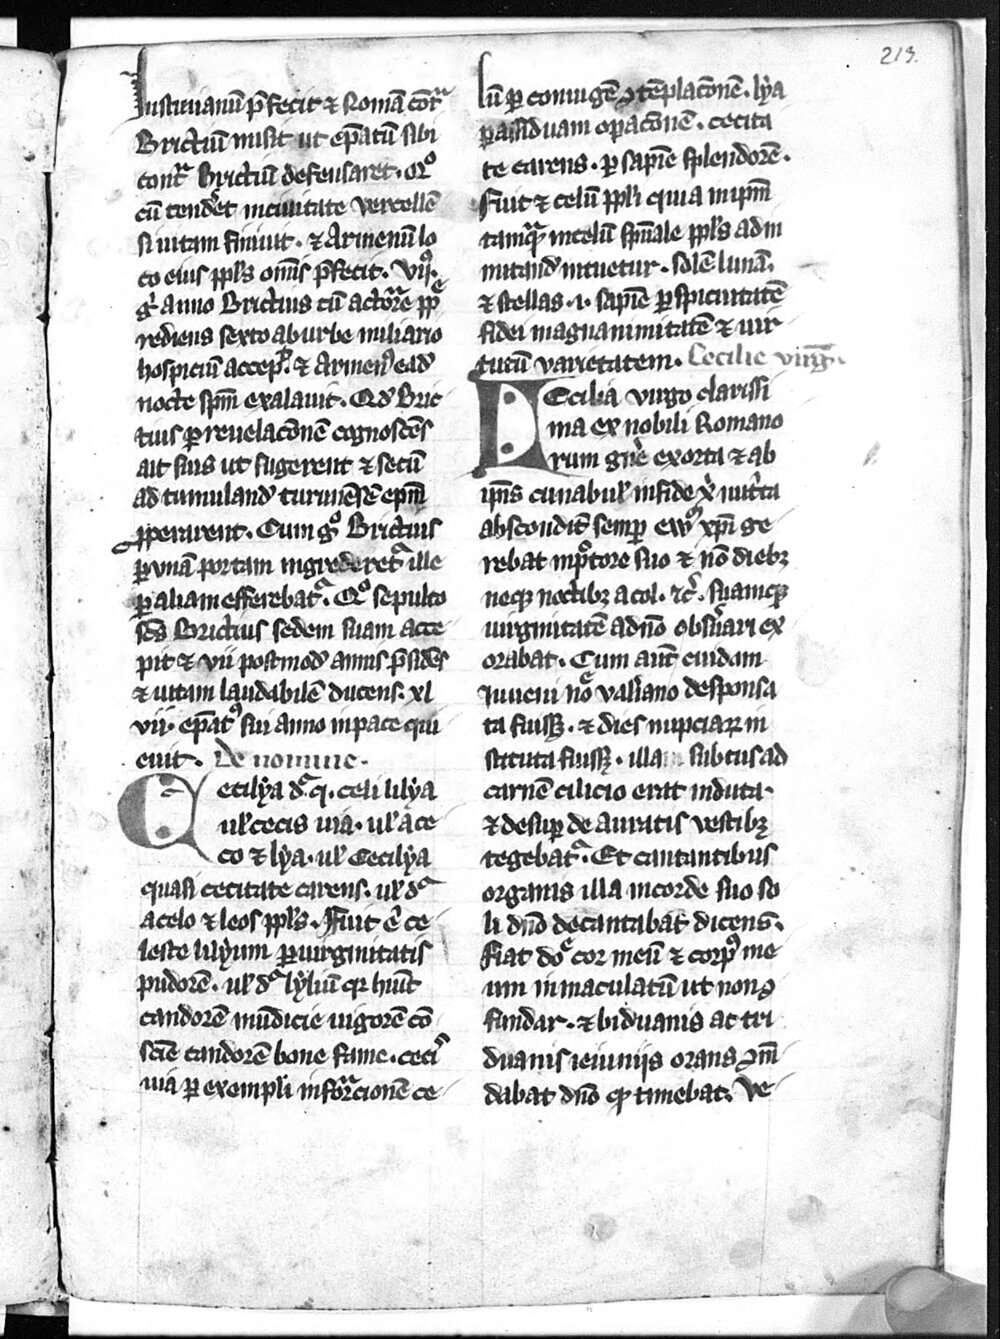 213.
Iustinianū p̄fecit ⁊ Romā cōtᷓ
Brictiū misit ut ep̄atū sibi
contᷓ Brictiū defensaret. Qͦ
cū tendēt incuutate vercellē
si uitam finiuit. ⁊ Armeniū lo
co eius pplˀs om̄is p̄fecit. Vijͦ.
gͥ anno Brictius cū actōre pp̄e
rediens sexto ab urbe miliario
hospiciū accepˀ. ⁊ Armeniꝰ ead̄
nocte sp̄m exalauit. Qd̄ Bric
tius ꝑ reuelac̄onē cognoscēs
ait suis ut sugerent ⁊ secū
ad tumuland̄ turunēsē ep̄m
ꝓperarent. Cum gͦ Brictius
ꝑ vnā portam ingrederetᷓ ille
ꝑ aliam efferebatᷓ. Qͦ sepulto
sc̄s Brictius sedem suam acce
pit ⁊ vii postmod̄ annis p̄sidēs
⁊ uitam laudabilē ducens. xl
vii. ep̄atꝰ sui anno in pace qui
euit. De nomine.
Cecilya dᷓ. q. celi lilya
ul̄ cecis uia. ul̄ a ce
co ⁊ lya. ul̄ Cecilya
quasi cecitate carens. ul̄ dᷓ
a celo ⁊ leos pplˀs. Fuit .n. ce
leste lilyum ꝑ uirginitatis
pudorē. ul̄ dᷓ lyliū qꝛ huit
candorē mūdicie uigorē cō
sciē candorē bone fame. cecˀ
uia ꝑ exempli infōrcionē ce
lū ꝑ coniugē ꝯtēplac̄onē. lya
ꝑ assiduam opac̄onē. cecita
te carens. ꝑ sapiē splendorē.
Fuit ⁊ celū ppl̄i quia in ip̄m
tamqᷓ in celū sp̄uale pplˀs ad im
mitand̄ intuetur. solē lunā.
⁊ stellas .i. sapiē ꝑspicuitatē
fidei magnanimitatē ⁊ uir
tutū varietatem. Cecilie virḡ.
Cecilia virgo clarissi
ma ex nobili Romano
rum gn̄e exorta ⁊ ab
ip̄is cunabul̄ in fide xͥ nutͥta
absconditū semꝑ ewꝰ xp̄i ge
rebat in pͨtore suo ⁊ nō diebꝫ
neqꝫ noctibꝫ a col. ⁊c̄. suamqꝫ
uirginitatē ad n̄o obsūari ex
orabat. Cum aūt cuidam
iuueni noͤ valiano desponsa
ta fuissꝫ. ⁊ dies nupciaꝝ in
stituta fuissꝫ. illa subtus ad
carnē cilicio erat induta.
⁊ desuꝑ de auratis vestibꝫ
tegebatᷓ. Et cantantibus
organis illa in corde suo so
li dn̄o decantabat dicens.
Fiat dōe cor meū ⁊ corpꝰ me
um inmaculatū ut non ꝯ
fundar. ⁊ biduanis ac tri
duanis ieiuniis orans ꝯm̄
dabat dn̄o qꝫ timebat. Ve